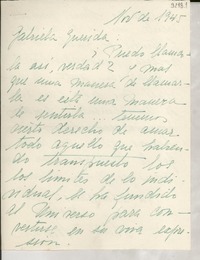 Nov de 1945
Gabriela querida:
¿Puedo llamar-
la así, verdad? Y mas
que una manera de llamar-
la es esta una manera
de sentirla... tenemos
cierto derecho de amar
todo aquello que habien-
do transpuesto los
los límites de lo indi-
vidual, se ha fundido
el Universo para con-
vertirse en su voz expre-
sion.